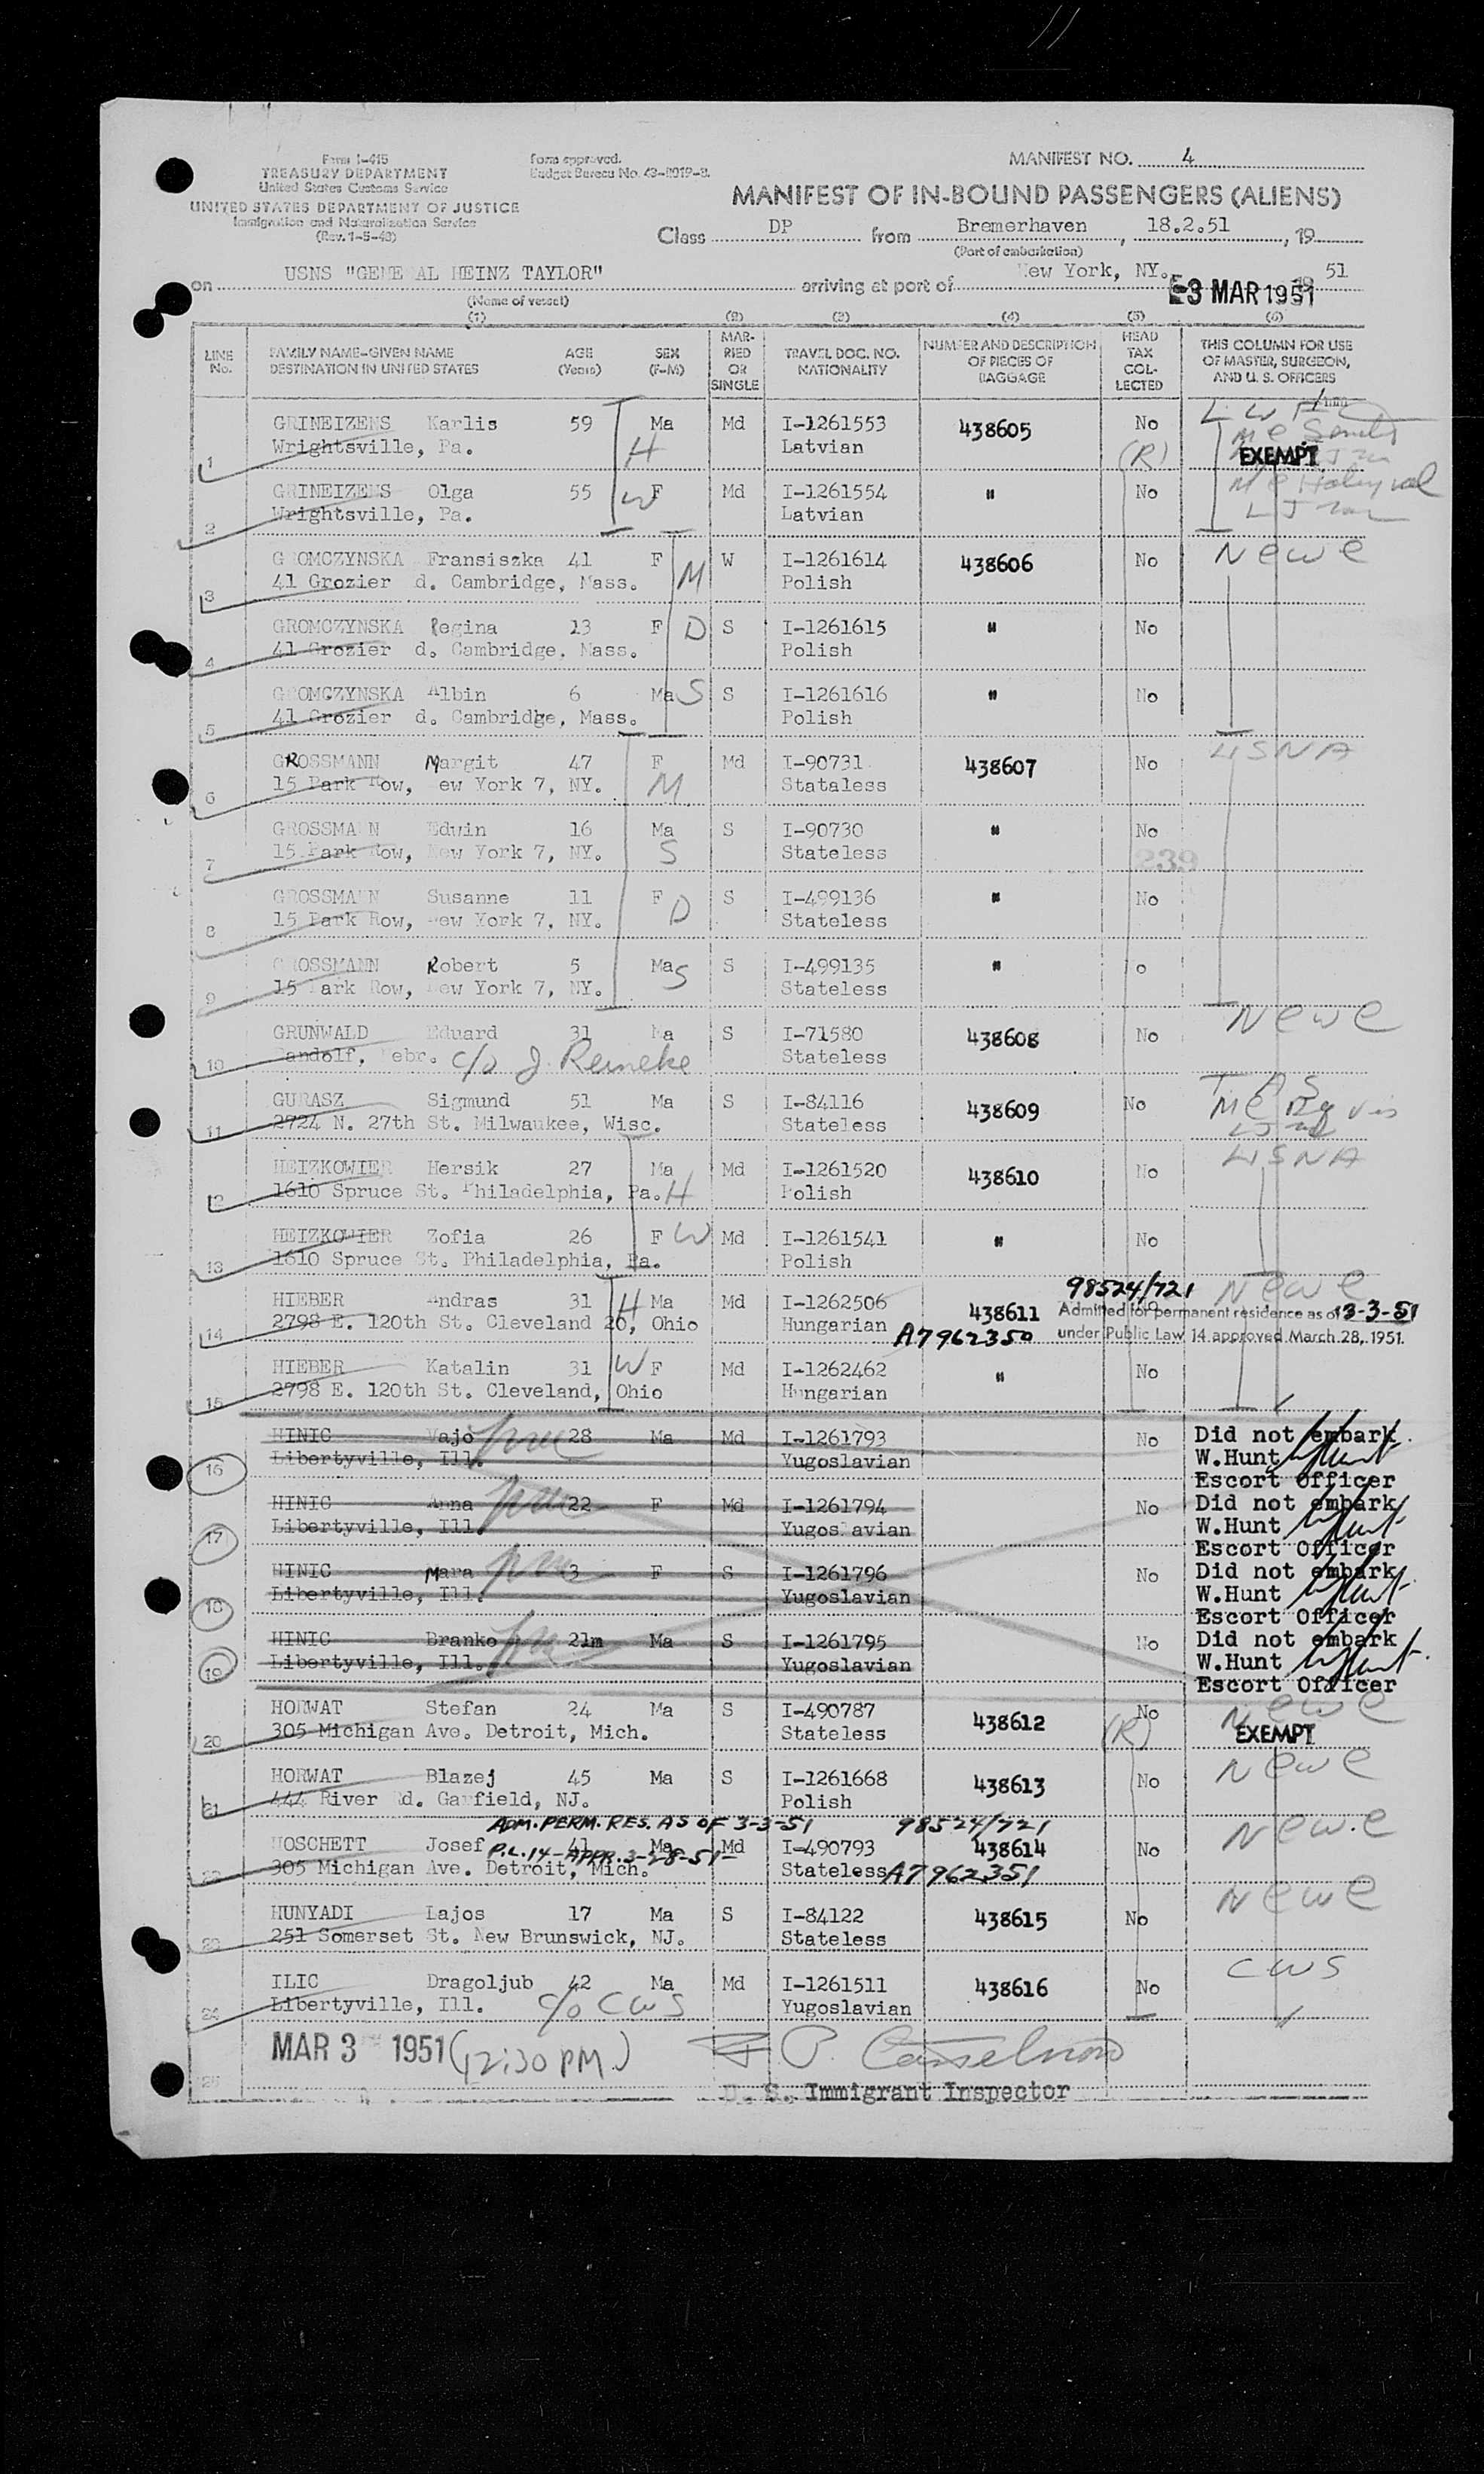 Form I-415
TREASURY DEPARTMENT
United States Customs Service
UNITED STATES DEPARTMENT OF JUSTICE
Immigration and Naturalization Service
(Rev. 1-5-48)
Form approved.
Budget Bureau No. 43-R019-3.
MANIFEST NO. 4
MANIFEST OF IN-BOUND PASSENGERS (ALIENS)
Class DP from Bremerhaven, 18.2.51, 19
(Port of embarkation)
on USNS "GENERAL HEINZ TAYLOR" arriving at port of New York, NY. 51
(Name of vessel)
3 MAR 1951
(1) (2) (3) (4) (5) (6)
LINE No.
FAMILY NAME-GIVEN NAME DESTINATION IN UNITED STATES
AGE (Years)
SEX (F-M)
MARRIED OR SINGLE
TRAVEL DOC. NO. NATIONALITY
NUMBER AND DESCRIPTION OF PIECES OF BAGGAGE
HEAD TAX COLLECTED
THIS COLUMN FOR USE OF MASTER, SURGEON, AND U. S. OFFICERS
1 GRINEIZENS Karlis 59 Ma Md I-1261553 438605 No
Wrightsville, Pa. H Latvian (R) EXEMPT
2 GRINEIZENS Olga 55 W F Md I-1261554 " No
Wrightsville, Pa. Latvian
3 GROMCZYNSKA Fransiszka 41 F W I-1261614 438606 No NCWC
41 Grozier d. Cambridge, Mass. M Polish
4 GROMCZYNSKA Regina 13 F D S I-1261615 " No
41 Grozier d. Cambridge, Mass. Polish
5 GROMCZYNSKA Albin 6 Ma S S I-1261616 " No
41 Grozier d. Cambridge, Mass. Polish
6 GROSSMANN Margit 47 F Md I-90731 438607 No USNA
15 Park Row, New York 7, NY. M Stataless
7 GROSSMANN Edwin 16 Ma S I-90730 " No
15 Park Row, New York 7, NY. S Stateless 239
8 GROSSMANN Susanne 11 F D S I-499136 " No
15 Park Row, New York 7, NY. Stateless
9 GROSSMANN Robert 5 Ma S S I-499135 " No
15 Park Row, New York 7, NY. Stateless
10 GRUNWALD Eduard 31 Ma S I-71580 438608 No NCWC
Randolf, Nebr. c/o J. Reineke Stateless
11 GURASZ Sigmund 51 Ma S I-84116 438609 No
2724 N. 27th St. Milwaukee, Wisc. Stateless
12 HEIZKOWIER Hersik 27 Ma Md I-1261520 438610 No USNA
1610 Spruce St. Philadelphia, Pa. H Polish
13 HEIZKOWIER Zofia 26 F W Md I-1261541 " No
1610 Spruce St. Philadelphia, Pa. Polish
98524/721
14 HIEBER Andras 31 H Ma Md I-1262506 438611 No NCWC
Admitted for permanent residence as of 3-3-51
2798 E. 120th St. Cleveland 20, Ohio Hungarian A7962350
under Public Law 14 approved March 28, 1951.
15 HIEBER Katalin 31 W F Md I-1262462 " No
2798 E. 120th St. Cleveland, Ohio Hungarian
16 HINIC Vajo 28 Ma Md I-1261793 No Did not embark.
Libertyville, Ill. Yugoslavian W.Hunt
Escort Officer
17 HINIC Anna 22 F Md I-1261794 No Did not embark
Libertyville, Ill. Yugoslavian W.Hunt
Escort Officer
18 HINIC Mara 3 F S I-1261796 No Did not embark
Libertyville, Ill. Yugoslavian W.Hunt
Escort Officer
19 HINIC Branko 21m Ma S I-1261795 No Did not embark
Libertyville, Ill. Yugoslavian W.Hunt
Escort Officer
20 HORWAT Stefan 24 Ma S I-490787 438612 No NCWC
305 Michigan Ave. Detroit, Mich. Stateless (R) EXEMPT
21 HORWAT Blazej 45 Ma S I-1261668 438613 No NCWC
444 River Rd. Garfield, NJ. Polish
ADM. PERM. RES. AS OF 3-3-51 98524/721
22 HOSCHETT Josef 41 Ma Md I-490793 438614 No NCWC
P.L. 14-APPR. 3-28-51
305 Michigan Ave. Detroit, Mich. Stateless A7962351
23 HUNYADI Lajos 17 Ma S I-84122 438615 No NCWC
251 Somerset St. New Brunswick, NJ. Stateless
24 ILIC Dragoljub 42 Ma Md I-1261511 438616 No CWS
Libertyville, Ill. c/o CWS Yugoslavian
25 MAR 3 1951 (12:30 PM.)
U. S. Immigrant Inspector